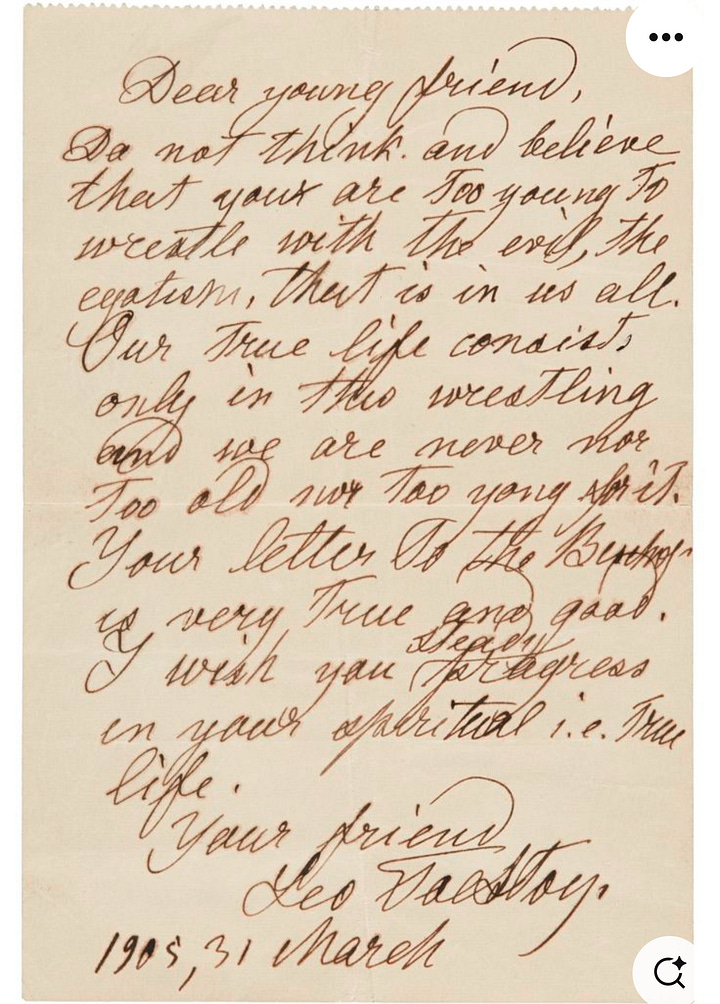 Dear young friend,
Do not think. and believe
that your are too young to
wrestle with the evil, the
egotism, that is in us all.
Our true life consists
only in this wrestling
and we are never nor
too old nor too yong for it.
Your letter to the Bishop
is very true and good.
Steady
I wish you progress
in your spiritual i.e. true
life.
Your friend
Leo Tolstoy.
1905, 31 March